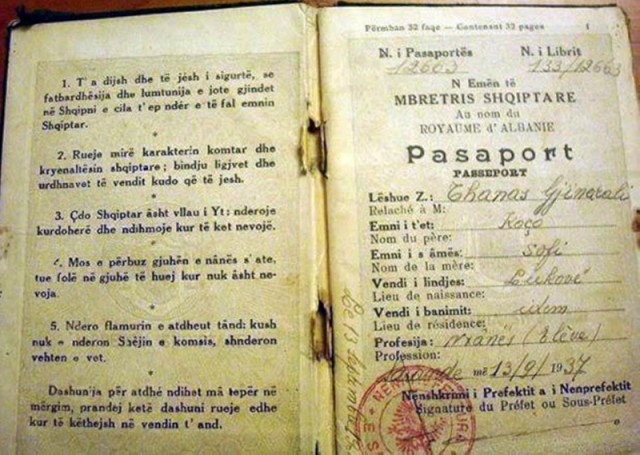 1. T'a dijsh dhe të jèsh i sigurtë, se
fatbardhësija dhe lumtunija e jote gjindet
në Shqipni e cila t'ep ndér e të fal emnin
Shqiptar.
2. Rueje mirë karakterin komtar dhe
kryenaltësin shqiptare; bindju ligjvet dhe
urdhnavet të vendit kudo që të jesh.
3. Çdo Shqiptar âsht vllau i Yt: nderoje
kurdoherë dhe ndihmoje kur të ket nevojë.
4. Mos e përbuz gjuhën e nánës s'ate,
tue folë në gjuhë të huej kur nuk âsht ne-
voja.
5. Ndero flamurin e atdheut tând: kush
nuk e nderon Shêjin e komsis, shnderon
vehten e vet.
Dashunija për atdhé ndihet mâ tepër në
mërgim, prandej ketë dashuni rueje edhe
kur të këthejsh në vendin t'and.
Përmban 32 faqe — Contenent 32 pages 1
N. i Pasaportës N. i Librit
12663 133/12663
N Emën të
MBRETRIS SHQIPTARE
Au nom du
ROYAUME d'ALBANIE
Pasaport
PASSEPORT
Lëshue Z.: Thanas Gjinarali
Relaché à M:
Emni i t'et: Koço
Nom du père:
Emni i s âmës: Sofi
Nom de la mère:
Vendi i lindjes: Lukovë
Lieu de naissance:
Vendi i banimit: idem
Lieu de résidence:
Profesija: nxanës (Elève)
Profession:
Sarandë më 13/9/1937
Nënshkrimi i Prefektit a i Nenprefektit
Signature du Préfet ou Sous-Préfet